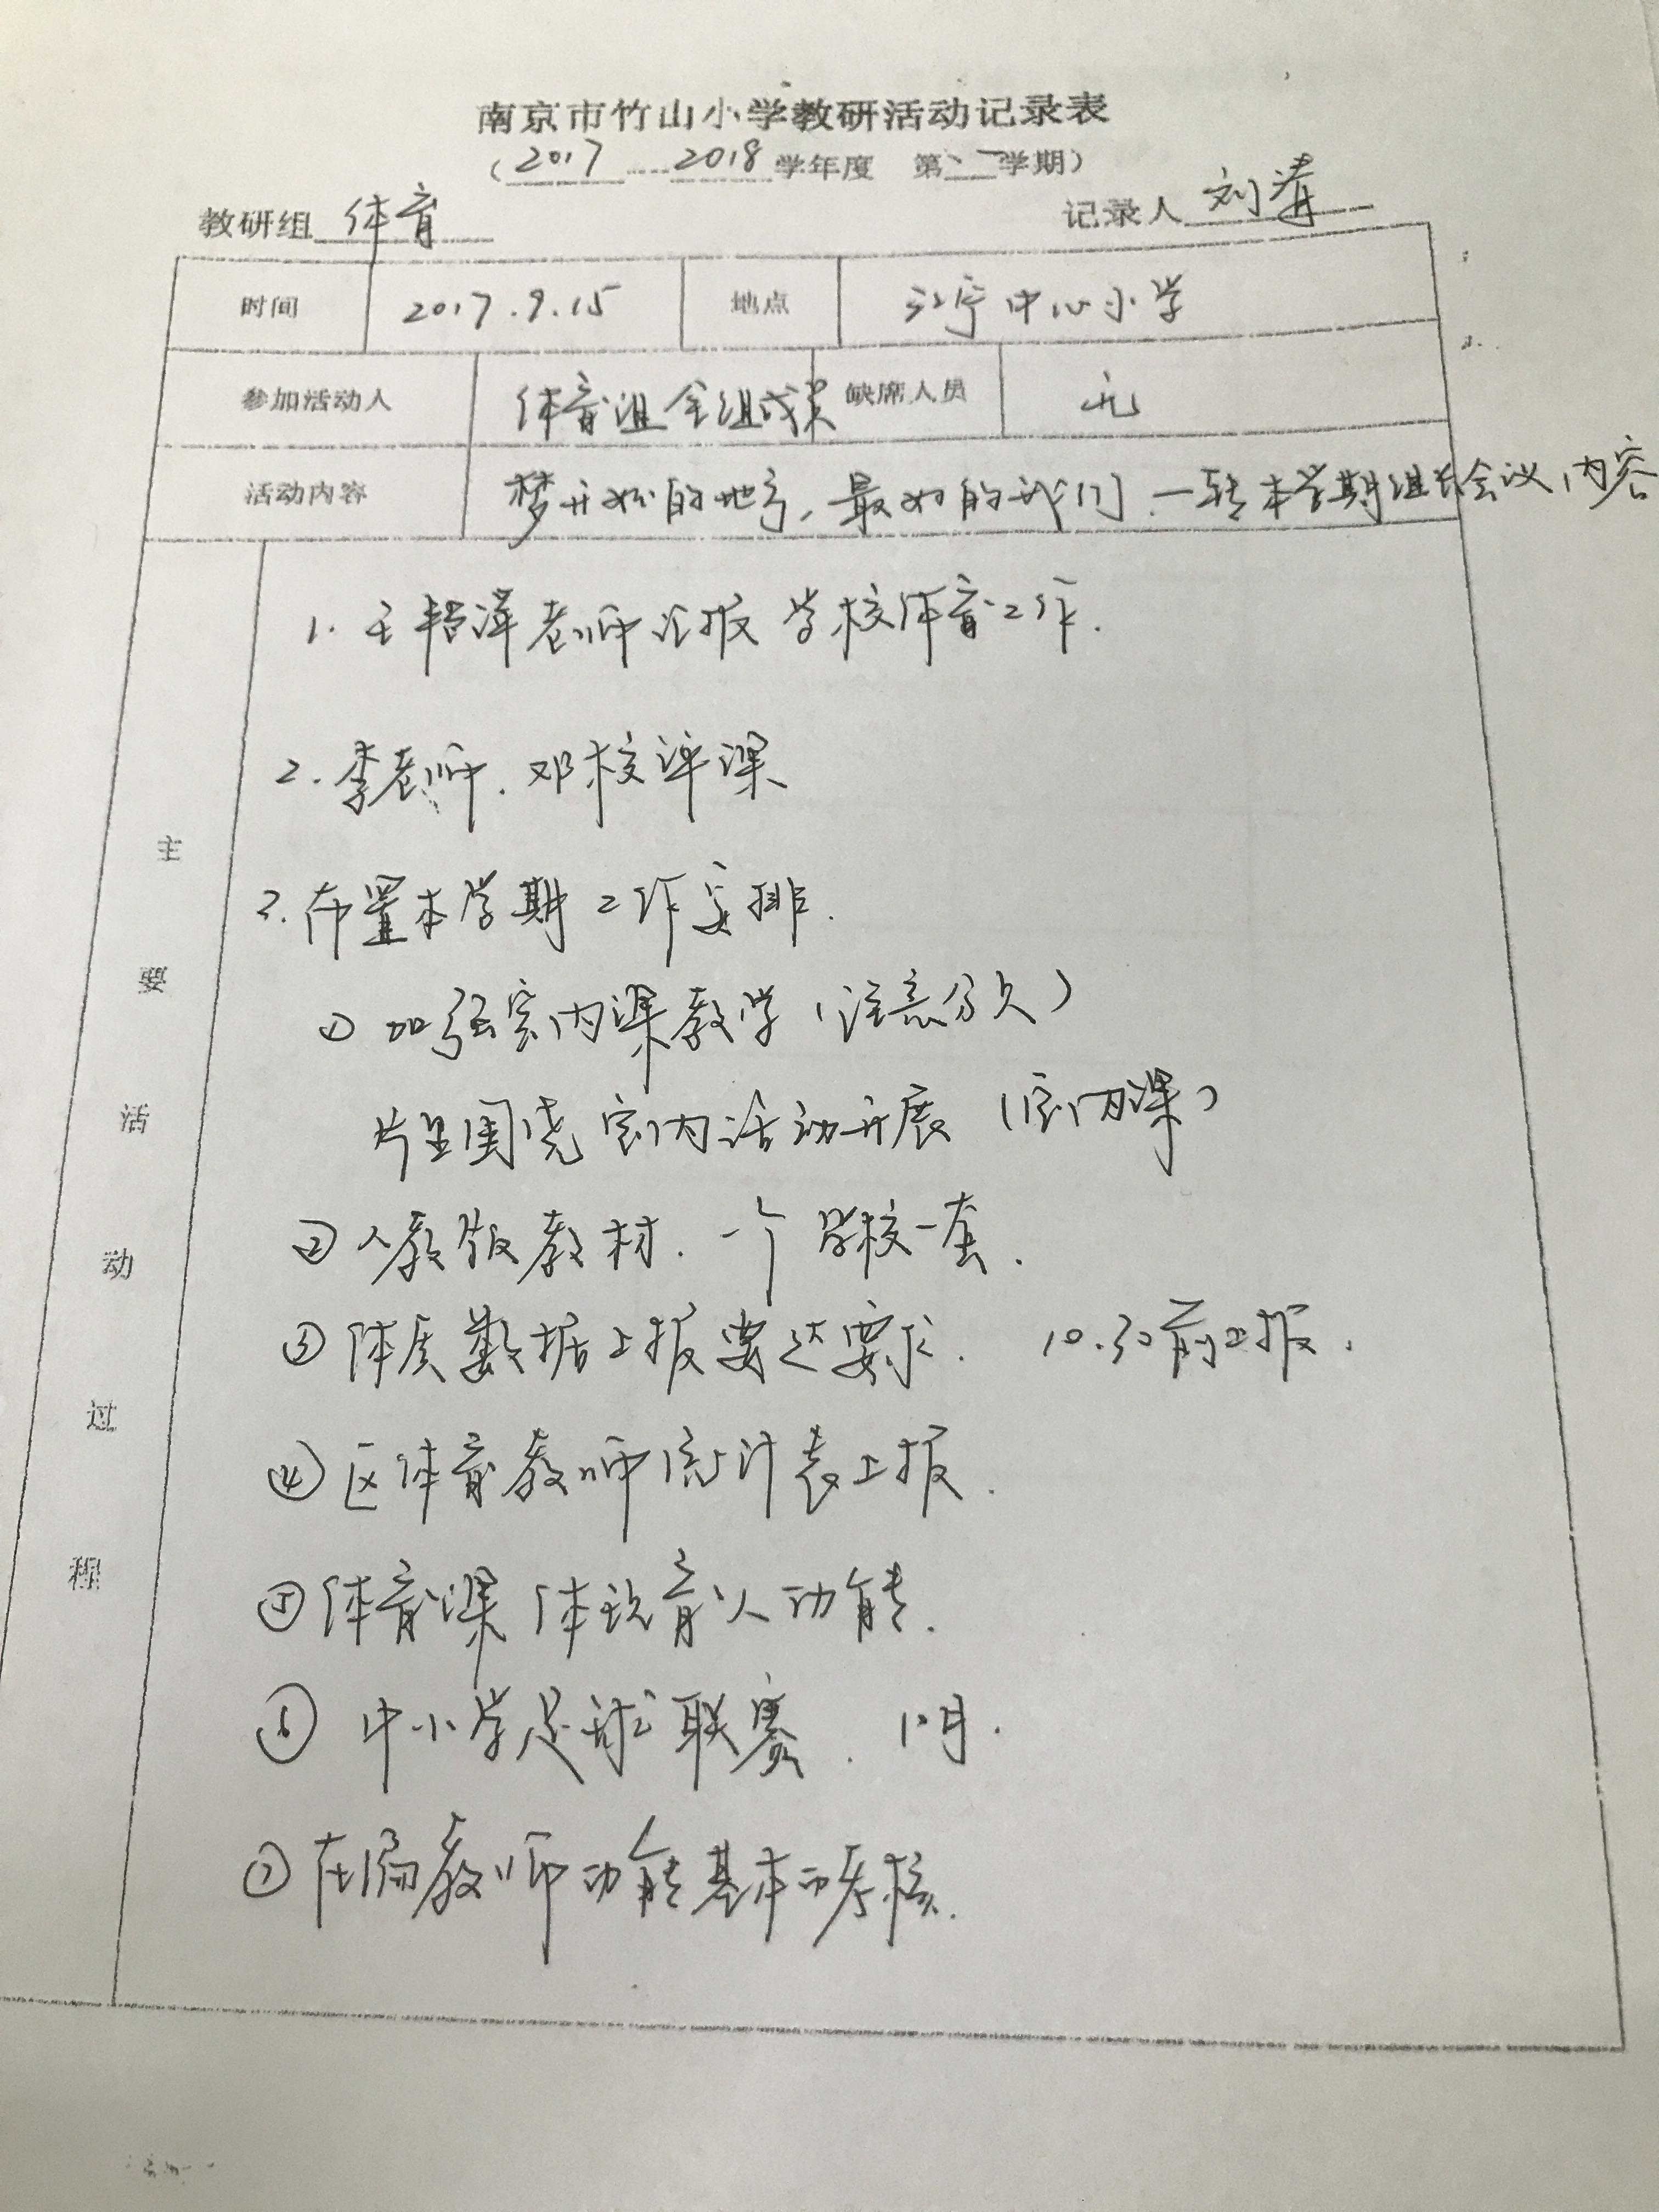 南京市竹山小学教研活动记录表
(2017 2018学年度 第一学期)
教研组 体育 记录人 刘
时间 2017.9.15 地点 江宁中心小学
参加活动人 体育组全组成员 缺席人员 无
活动内容 梦开始的地方,最初的我们.—转本学期组长会议内容
1. 王 泽老师汇报学校体育工作.
2. 李老师.邓校评课
3. 布置本学期工作安排.
① 加强室内课教学(注意分久)
片区围绕室内活动开展(室内课)
② 人教版教材.一个学校一套.
③ 体质数据上报要达要求. 10.30前上报.
④ 区体育教师统计表上报.
⑤ 体育课体现育人功能.
⑥ 中小学足球联赛. 10月.
⑦ 在编教师功能基本功考核.
主要活动过程